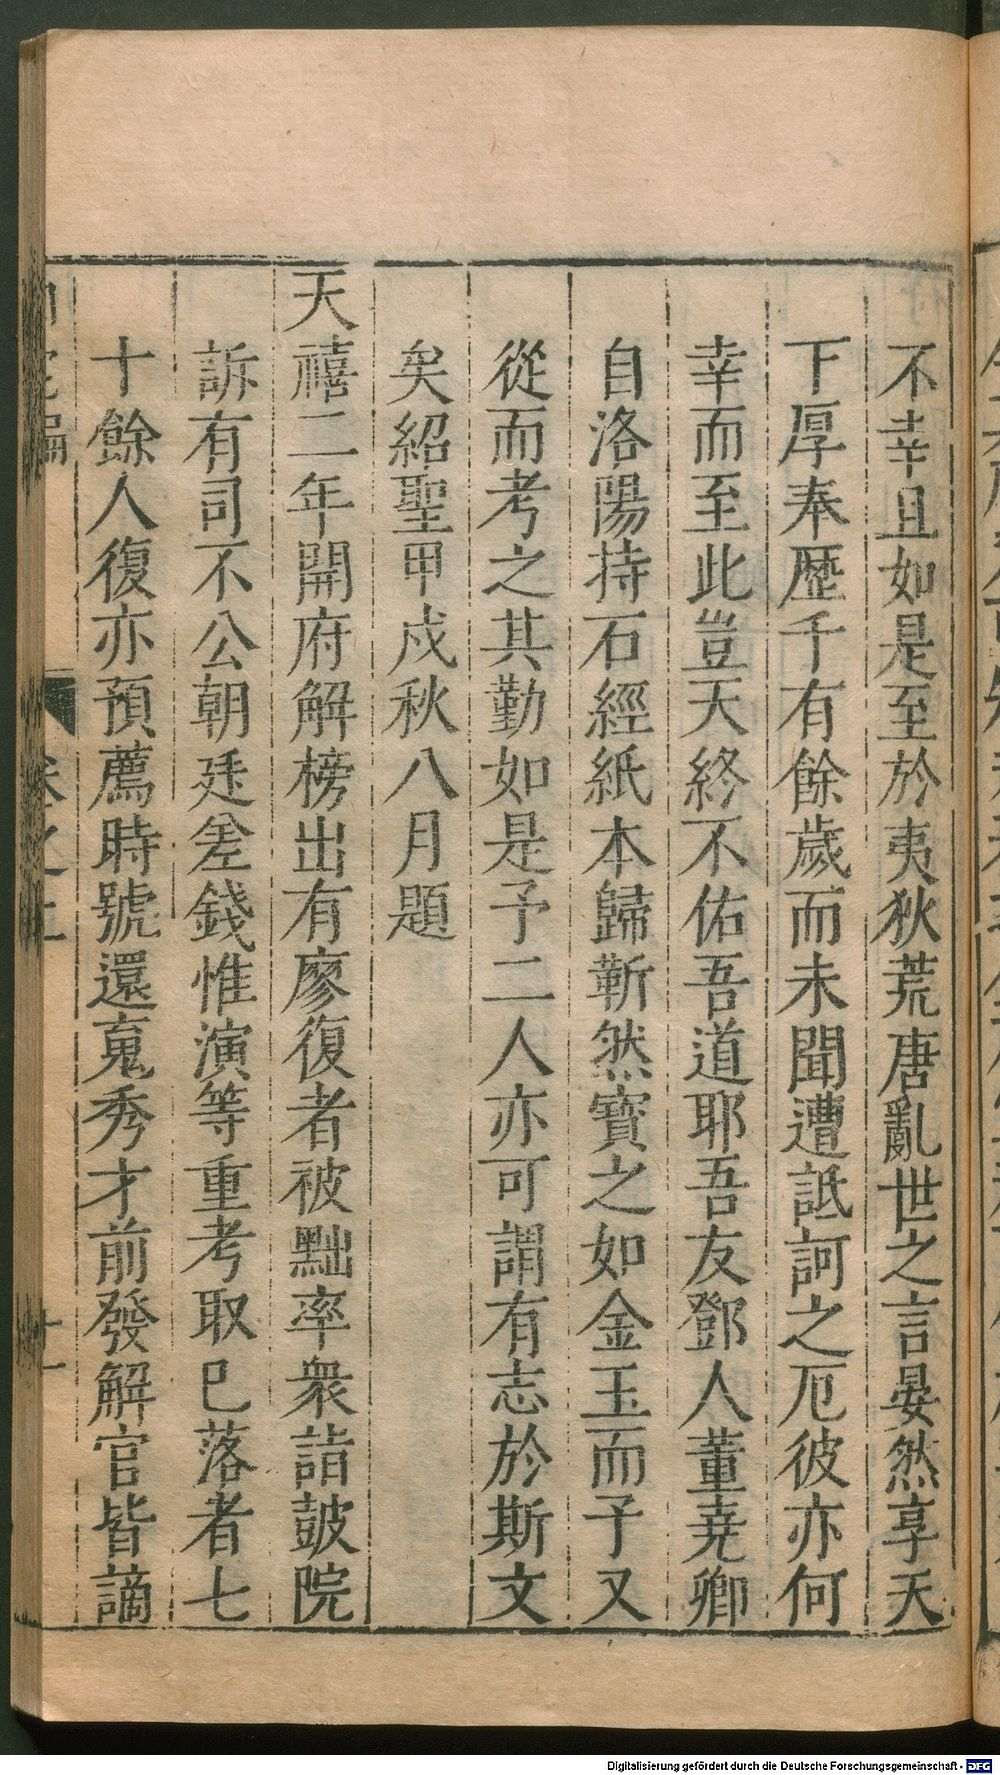 不幸且如是至於夷狄荒唐亂世之言晏然享天
下厚奉歷千有餘歲而未聞遭詆訶之厄彼亦何
幸而至此豈天終不佑吾道耶吾友鄧人董堯卿
自洛陽持石經紙本歸靳然寶之如金玉而子又
從而考之其勤如是予二人亦可謂有志於斯文
矣紹聖甲戍秋八月題
天禧二年開府解榜出有廖復者被黜率衆詣鼓院
訴有司不公朝廷差錢惟演等重考取巳落者七
十餘人復亦預薦時號還䰟秀才前發解官皆謫
卷之上
十一
Digitalisierung gefördert durch die Deutsche Forschungsgemeinschaft - DFG